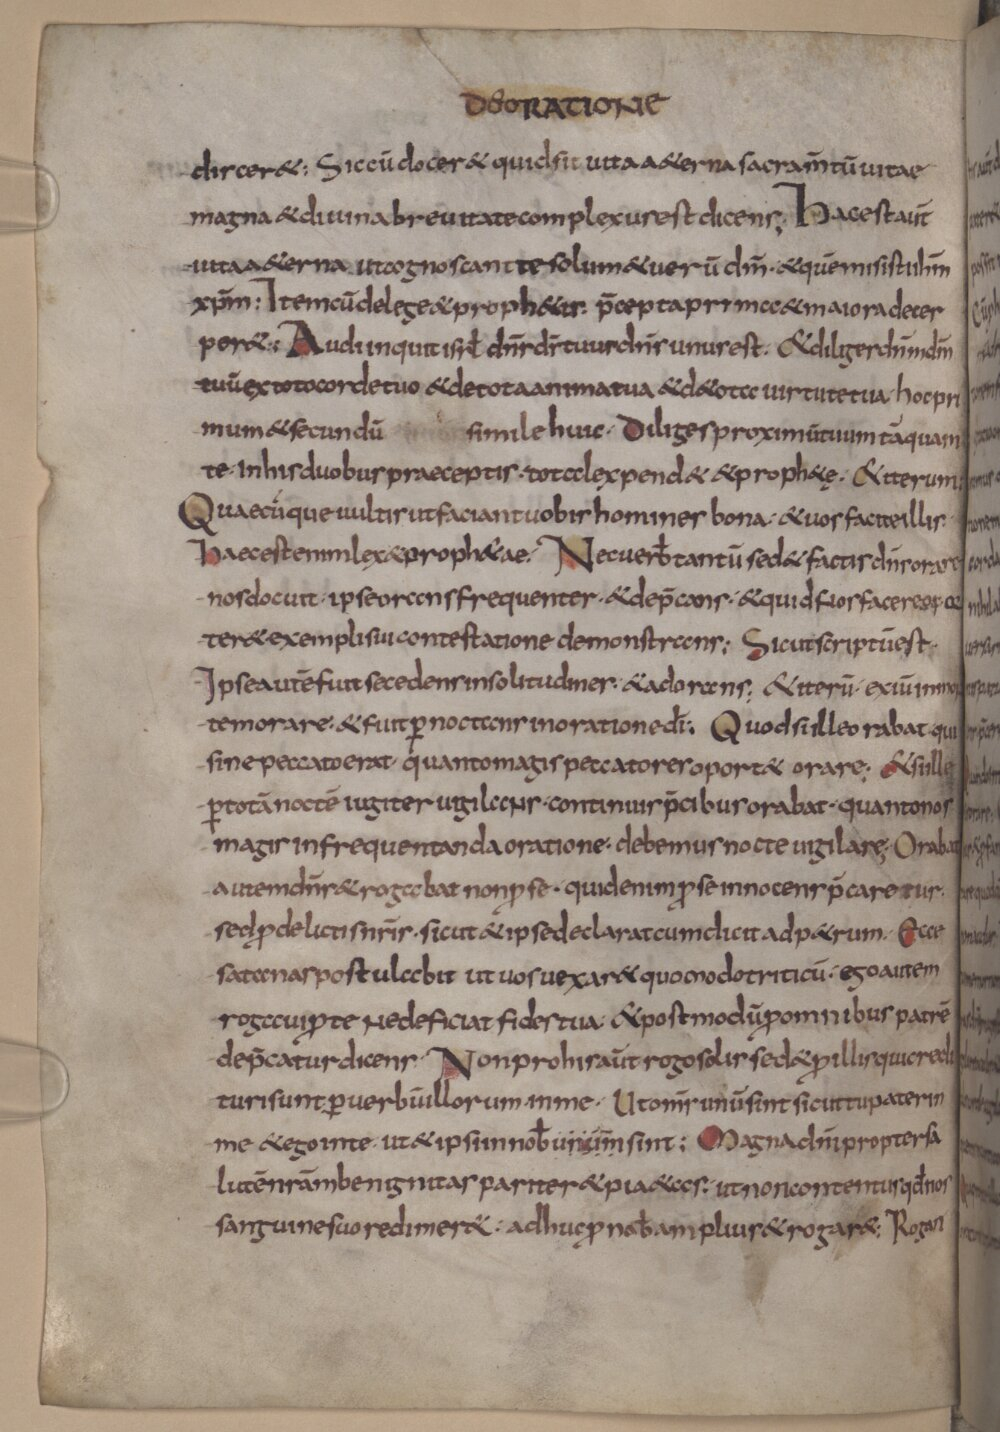 DE ORATIONE
discer&: Siccū docer& quid sit uita a&erna sacram̄tū uitae
magna & diuina breuitate complexus est dicens; Haec est aut̄
uita a&erna ut cognoscant te solum & uerū dm̄. & quē misisti ihm̄
xp̄m: Item cū de lege & proph&is p̄cepta prima & maiora decer
per&; Audi inquit isrl̄ dn̄s ds̄ tuus dn̄s unus est. & diliges dn̄m dm̄
tuū ex toto corde tuo & de tota anima tua & de tota uirtute tua. hoc pri
mum & secundū simile huic. Diliges proximū tuum tāquam
te. In his duobus praeceptis. tota lex pend& & proph&ę. & iterum
Quaecūque uultis ut faciant uobis homines bona. & uos facite illis.
Haec est enim lex & proph&ae. Nec uerb̄ tantū sed & factis dn̄s orare
nos docuit. ipse orans frequenter. & dep̄cans. & quid nos facere opor
ter& exempli sui contestatione demonstrans; Sicut scriptū est.
Ipse autē fuit secedens in solitudines. & adorans; & iterū. exiit in mon
tem orare. & fuit p̱noctans in oratione dī; Quod si ille orabat qui
sine peccato erat. quanto magis peccatores oport& orare; & si ille
p̱ totā noctē iugiter uigilans. continuis p̄cibus orabat. quanto nos
magis in frequentanda oratione. debemus nocte uigilare; Orabat
autem dn̄s & rogabat non ꝓ se. quid enim ꝓ se innocens p̄caretur.
sed ꝓ delictis nr̄is. sicut & ipse declarat cum dicit ad p&rum. Ecce
satanas postulabit ut uos uexar& quomodo triticū. ego autem
rogaui ꝓ te ne deficiat fides tua. & postmodū ꝓ omnibus patrē
dep̄catur dicens. Non pro his aūt rogo solis sed & ꝓ illis qui credi
turi sunt p̱ uerbū illorum in me. Ut om̄s unū sint sicut tu pater in
me & ego in te. ut & ipsi in nob̄ unum sint; Magna dn̄i propter sa
lutē nr̄am benignitas pariter & pi&as. ut non contentus qd̄ nos
sanguine suo redimer&. adhuc ꝓ nob̄ amplius & rogar&; Rogan